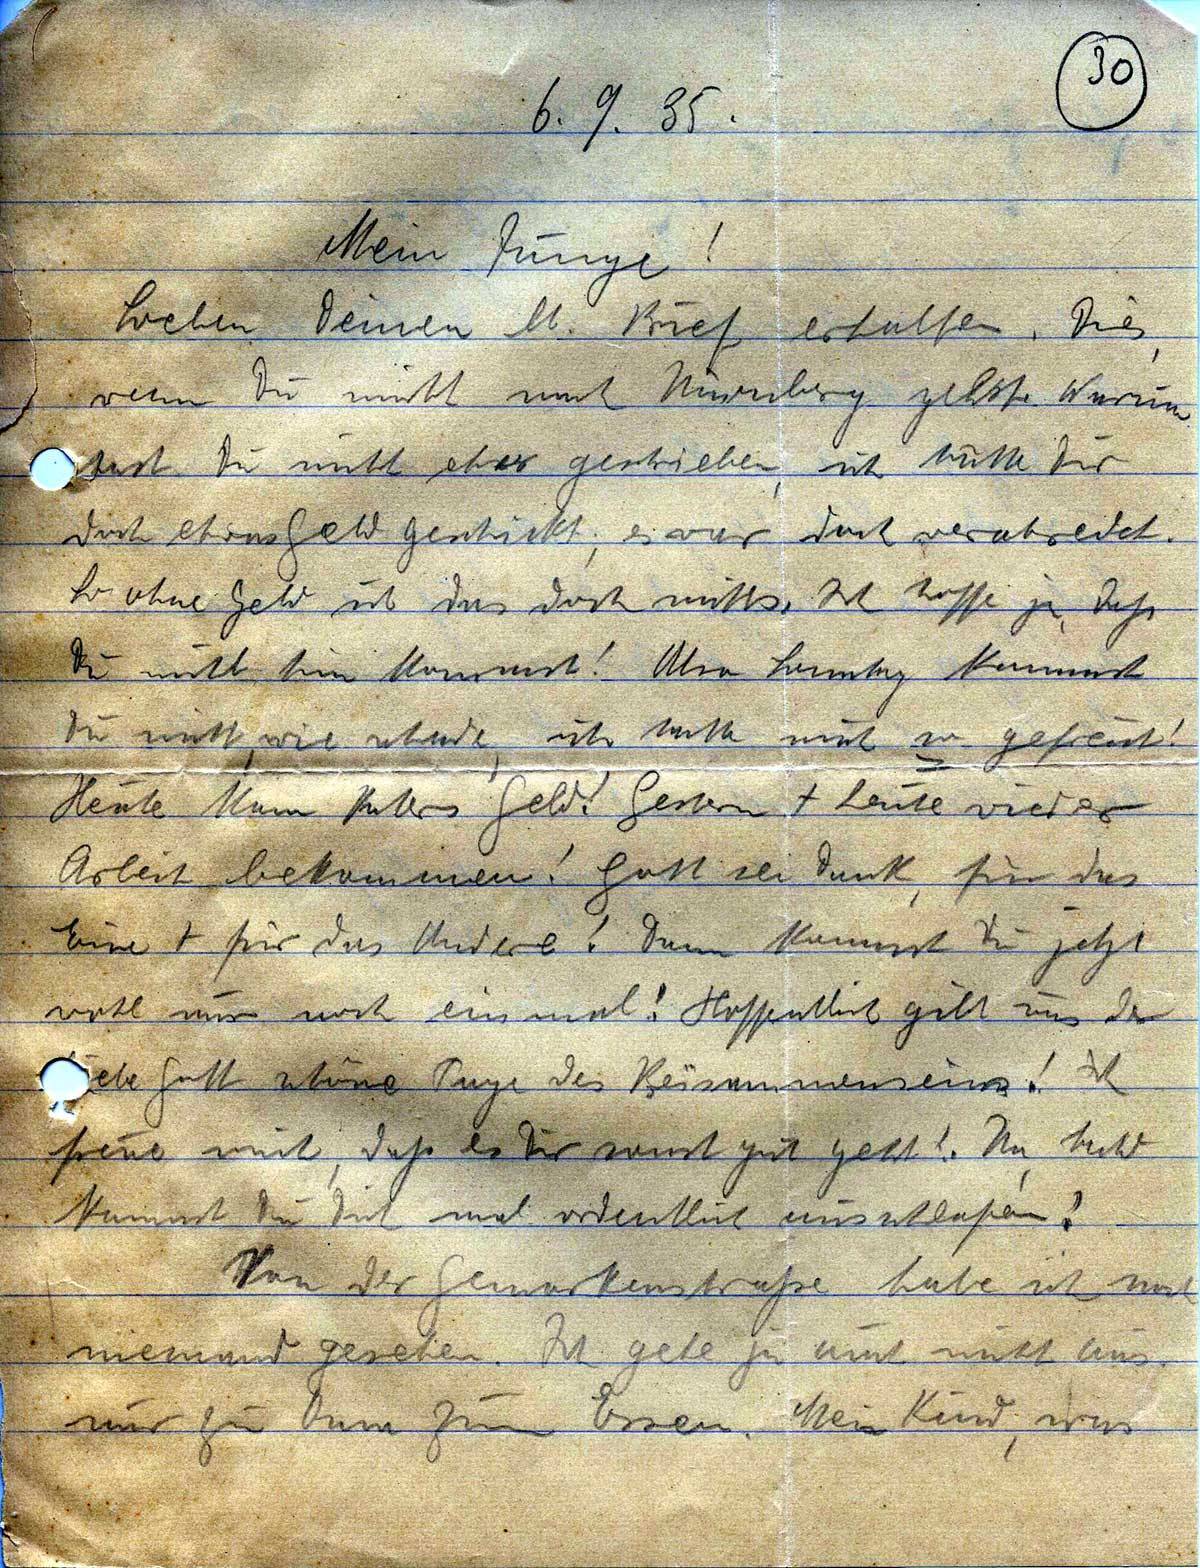 30
6. 9. 35.
Mein Junge!
Soeben Deinen lb. Brief erhalten.
wenn Du nicht nach Nürnberg gehst. Warum
hast Du nicht eher geschrieben, ich hätte Dir
doch etwas Geld geschickt, es war doch verabredet.
So ohne Geld ist das doch nichts. Ich hoffe ja, daß
Du nicht hin kommst! Also Sonntag kommst
Du nicht, wie schade, ich hatte mich so gefreut!
Heute kam Vaters Geld! Gestern + heute wieder
Arbeit bekommen! Gott sei Dank, für das
Eine + für das Andere! Dann kommst Du jetzt
wohl nur noch einmal! Hoffentlich gibt uns der
liebe Gott schöne Tage des Beisammenseins! Ich
freue mich, daß es Dir sonst gut geht! Na, bald
kannst Du Dich mal ordentlich ausschlafen!
Von der Gemarkenstraße habe ich noch
niemand gesehen. Ich gehe ja auch nicht aus.
nur zu zum Essen. Mein Kind, was